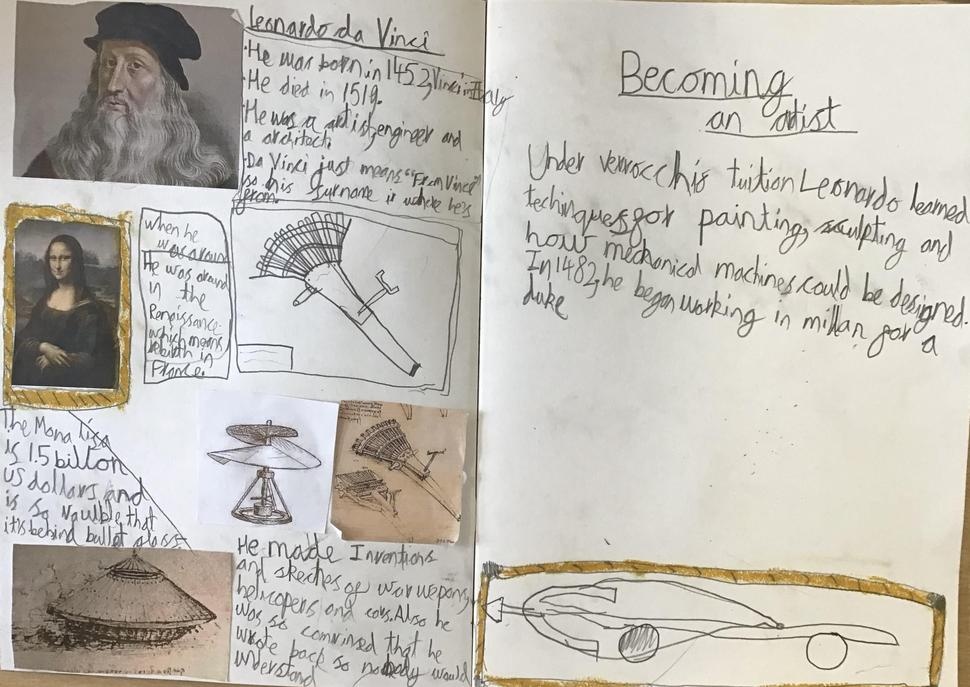 Leonardo da Vinci
·He was born in 1452, Vinci in Italy
·He died in 1519.
·He was a artist, engineer and
a architect.
·Da Vinci just means "From Vinci"
so his surname is where he's
from.
when he
was around
He was around
in the
Renaissance
which means
rebirth in
France.
The Mona lisa
is 1.5 billon
us dollars and
is so vaulble that
it's behind bullet glass
He made Inventions
and sketches of war wepons,
helicopers and cars. Also he
was so convinsed that he
wrote back so nobody would
understand
Becoming
an artist
Under verrocchis tuition Leonardo learned
techinques for painting, sculpting and
how mechanical machines could be designed.
In 1482, he began working in millan for a
duke